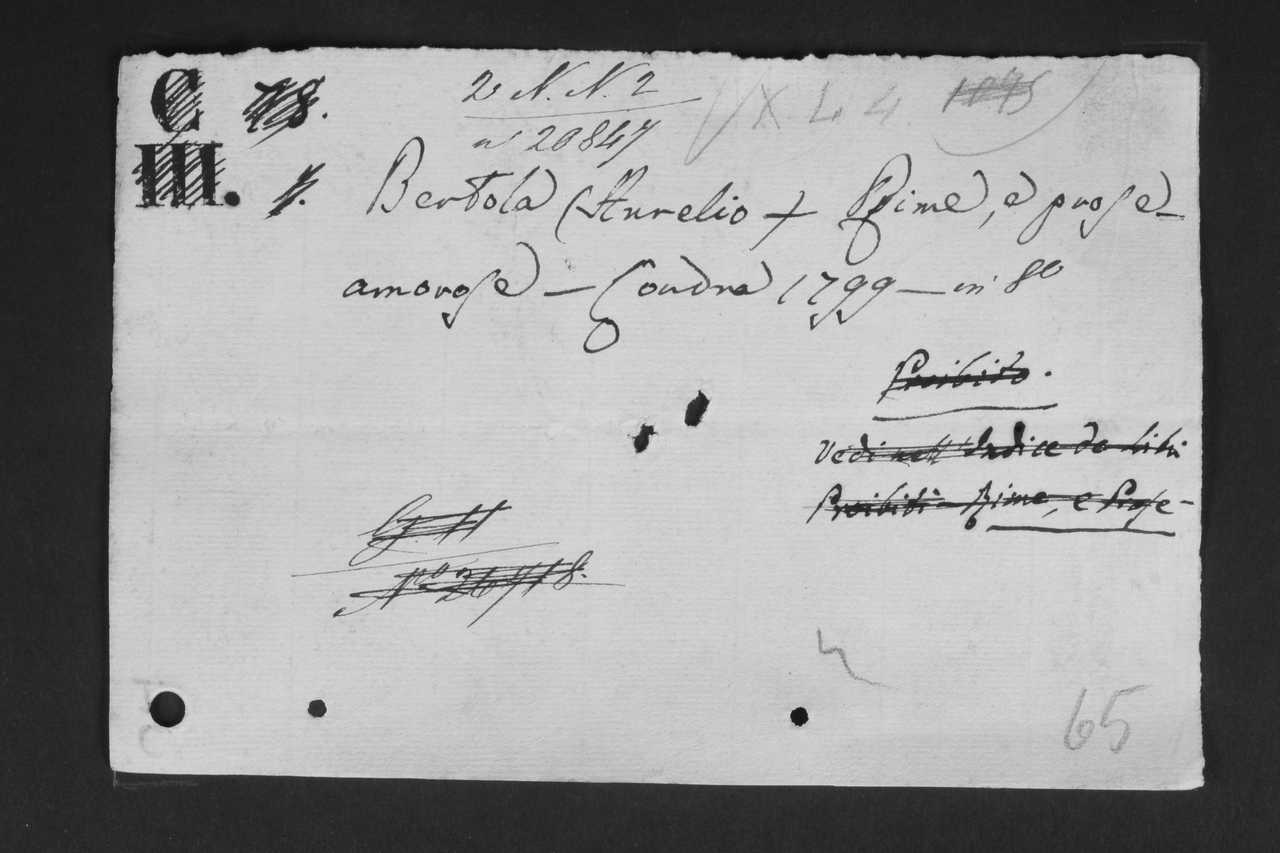 C 78.
III. 1.
2 N. N. 2
n° 20847
X. L. 4.
Bertola (Aurelio) Rime, e prose
amorose — Londra 1799 — in 8°
Proibito.
Vedi nell' Indice de libri
Proibiti — Rime, e Prose —
N° 26718.
65